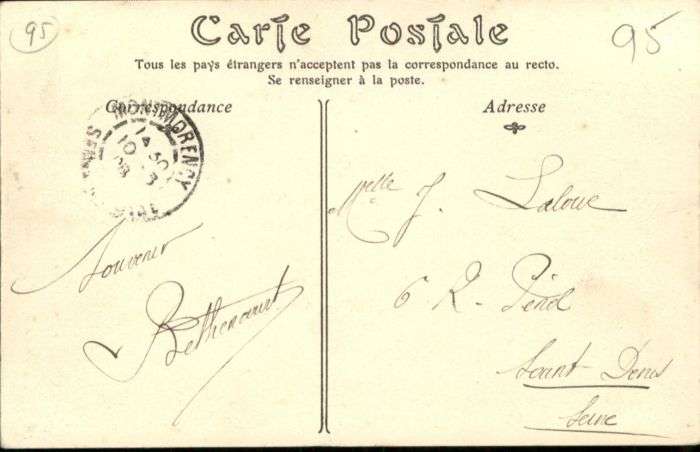 95
95
Carte Postale
Tous les pays étrangers n'acceptent pas la correspondance au recto.
Se renseigner à la poste.
Correspondance
Adresse
MONTMORENCY
14 30
10 - 3
08
SEINE
Melle J. Laloue
6 R. Pinel
Saint Denis
Seine
Souvenir
Bethencourt